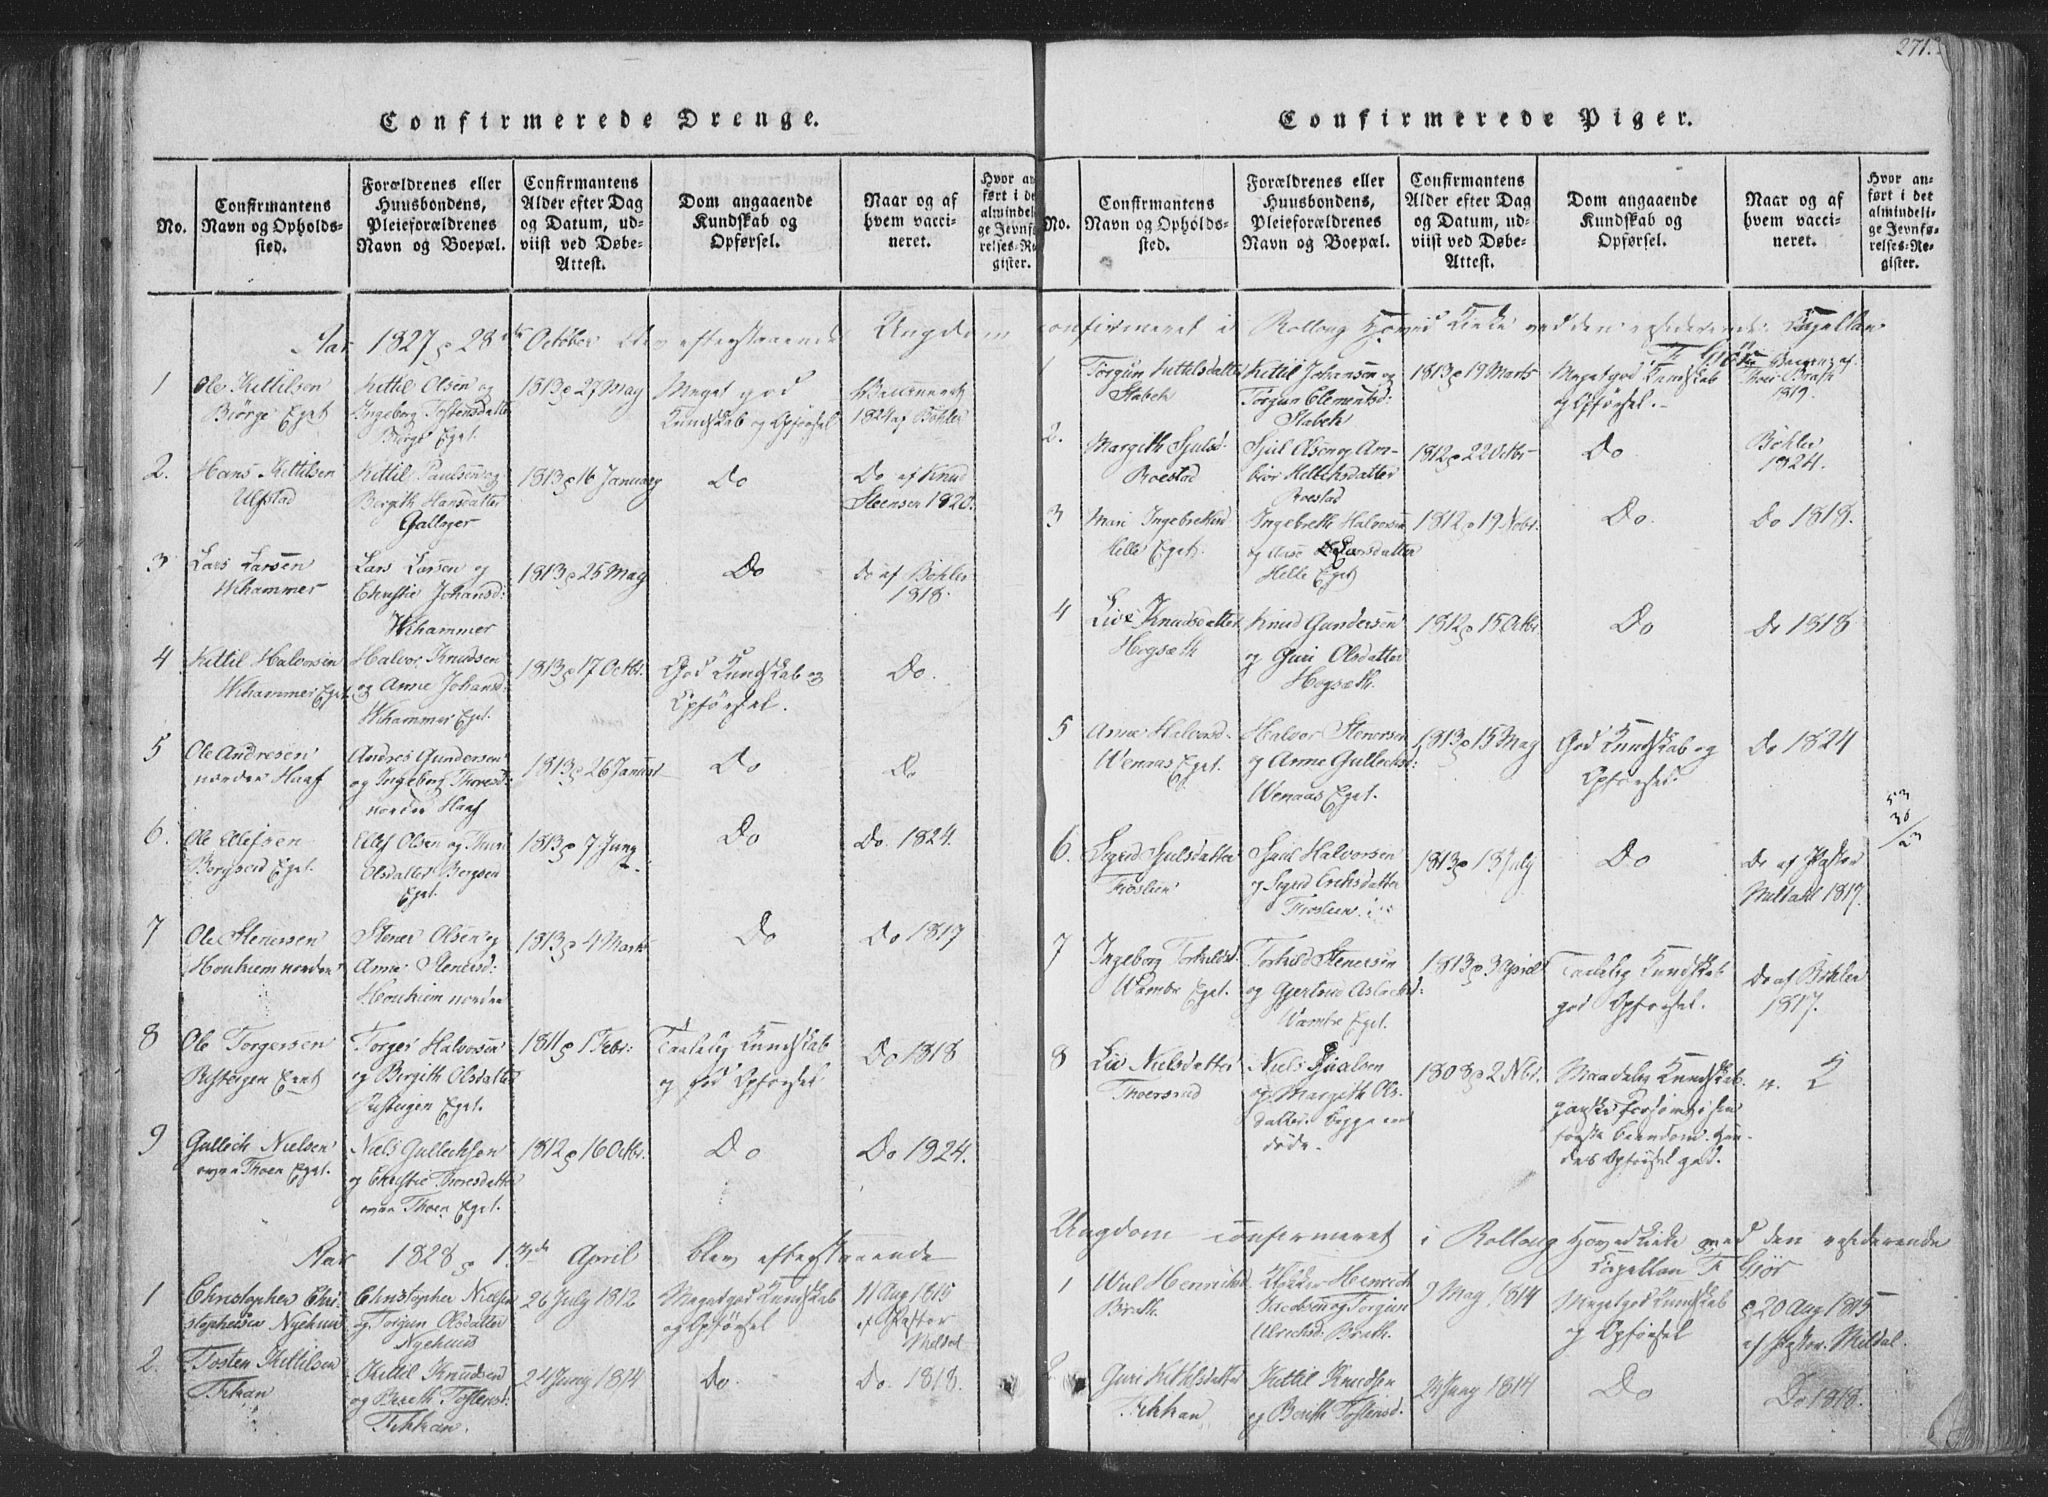 271.
Confirmerede Drenge.
No.
Confirmantens
Navn og Opholds-
sted.
Forældrenes eller
Huusbondens,
Pleieforældrenes
Navn og Boepæl.
Confirmantens
Alder efter Dag
og Datum, ud-
viist ved Døbe-
Attest.
Dom angaaende
Kundskab og
Opførsel.
Naar og af
hvem vacci-
neret.
Hvor an-
ført i det
almindeli-
ge Jevnfø-
relses-Re-
gister.
Aar 1827 28de October blev efterstaaende Ungdom
1
Ole Kittilsen
Biørge Eget
Kittil Olsen og
Ingeborg Tostensdatter
Biørge Eget.
1813 27 May
Meget god
Kundskab og Opførsel
Vaccineret
1824 af Bøhler
2.
Hans Kittilsen
Ulfstad
Kittil Paulsen og
Bergith Hansdatter
1813 16 January
Do
Do af Knud
Steensen 1820.
3
Lars Larsen
Wihammer
Lars Larsen og
Christie Johansd:
Wihammer
1813 25 May
Do
Do af Bøhler
1818.
4
Kittil Halvorsen
Wihammer Eget
Halvor Knudsen
og Anne Johansd:
Wihammer Eget.
1813 17 Octbr.
God Kundskab og
Opførsel.
Do.
5
Ole Andresen
nordre Haaf
Andres Gundersen
og Ingeborg Thoresd:
nordre Haaf
1813 26 Januar
Do
Do
6.
Ole Ellefsen
Eget.
Ellef Olsen og
Olsdatter
Eget.
1813 7 Juny
Do
Do. 1824.
7
Ole Stenersen
Houkiem nordre
Stener Olsen og
Anne Stenersd:
Houkiem nordre
1813 4 Marts
Do
Do 1817
8
Ole Torgersen
Risteigen Eget
Torger Halvorsen
og Bergith Olsdatter
Risteigen Eget.
1811 1 Febr:
Taalelig Kundskab
og god Opførsel
Do 1818
9
Gullech Nielsen
øvre Thoen Eget.
Niels Gullechsen
og Christie Thoresdatter
øvre Thoen Eget.
1812 16 Octbr.
Do
Do 1824.
Aar 1828 13de April blev efterstaaende
1
Christopher Chri-
stophersen Nyehuus
Christopher Nielsen
og Torgun Olsdatter
Nyehuus
26 July 1812
Meget god Kundskab
og Opførsel
11 Aug 1815
af Pastor
Meldal
2.
Tosten Kittilsen
Tekhan
Kittil Knudsen
og Bereth Tostensd:
Tekhan.
24 Juny 1814
Do.
Do. 1818.
Confirmerede Piger.
No.
Confirmantens
Navn og Opholds-
sted.
Forældrenes eller
Huusbondens,
Pleieforældrenes
Navn og Boepæl.
Confirmantens
Alder efter Dag
og Datum, ud-
viist ved Døbe-
Attest.
Dom angaaende
Kundskab og
Opførsel.
Naar og af
hvem vacci-
neret.
Hvor an-
ført i det
almindeli-
ge Jevnfø-
relses-Re-
gister.
confirmeret i Rolloug Hoved Kirke ved den residerende Capellan
F. Giør
1
Torgun Kittilsdatter
Stabek
Kittil Johansen og
Torgun Clementsd:
Stabek
1813 19 Marts
Meget god Kundskab
og Opførsel.
Vaccin: af
Thore Brath
1819.
2.
Margith Sjulsd.
Roestad
Sjul Olsen og Am-
biør Hellechsdatter
Roestad
1812 22 Octbr
Do
Bøhler
1824.
3
Mari Ingebrethsd
Helle Eget.
Ingebreth Halvorsen
og Aase
Helle Eget
1812 19 Nobr.
Do.
Do 1818.
4
Live Knudsdatter
Hogsæth
Knud Gundersen
og Guri Olsdatter
Hogsæth.
1812 15 Octbr.
Do
Do 1818
5
Anne Halvorsd.
Wenaas Eget.
Halvor Stenersen
og Anne Gullechsd:
Wenaas Eget.
1813 15 May
God Kundskab og
Opførsel.
Do 1824
53
30
/23
6.
Sigrid Sjulsdatter
Froslien
Sjul Halvorsen
og Sigrid Erichsdatter
Froslien
1813 18 July
Do
Do af Pastor
Meldahl 1817.
7
Ingeborg Torkildsd.
Wambre Eget.
Torkild Stenersen
og Gjertrud Aslachsd:
Wambre Eget.
1813 3 April
Taalelig Kundskab
god Opførsel.
Do af Bøhler
1817.
8
Liv Nielsdatter
Thoersrud
Niels
og Margith Ols-
datter. begge ere
døde.
1808 2 Nbr.
Maadelig Kundskab.
ganske forsømt i sin
første barndom. Hen-
des Opførsel god.
n.
Ungdom confirmeret i Rolloug Hovedkirke ved den residerende
Capellan F. Giør
1
Henrichsd
Brath.
Henrich
Jacobsen og Torgun
Ulrichsd: Brath.
9 May 1814
Meget god Kundskab
og Opførsel
20 Aug 1815
af Pastor. Meldal.
2
Guri Kittilsdatter
Tekhan
Kittil Knudsen
og Bereth Tostensd.
24 Juny 1814
Do
Do 1818.